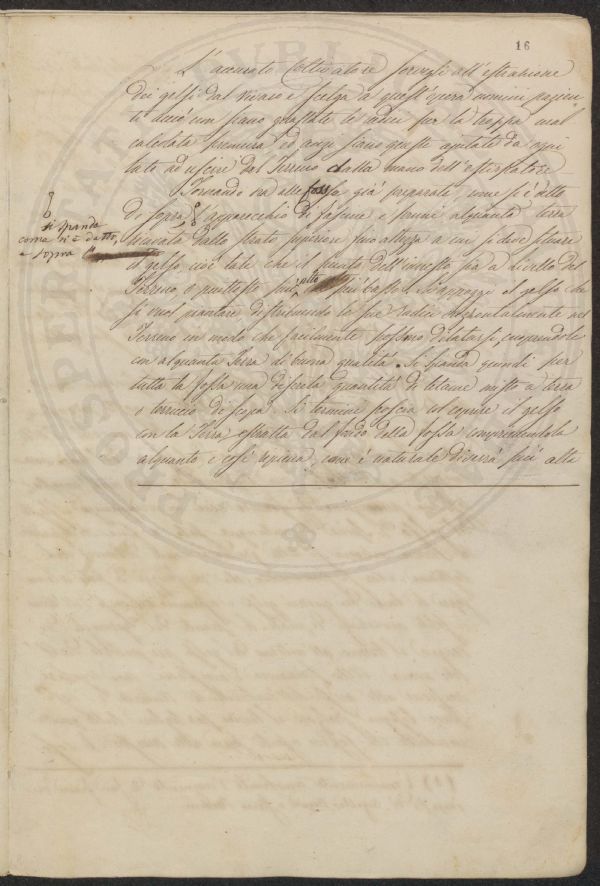 16
L'accurato Coltivatore sorvegli all'estrazione
dei gelsi dal vivaio e scelga a quest'opera uomini pazien
ti onde non siano guastate le radici per la troppa mal
calcolata premura ed anzi siano queste ajutate da ogni
lato ad uscire dal Terreno dalla mano dell'estirpatore
Tornando ora alle fosse già preparate, come si è detto
di sopra, apparecchio di fascine e pruni alquanta terra
si spanda
come si è detto,
e sopra
levata dallo strato superiore fino altezza a cui si deve situare
il gelso cioè tale che il punto dell'innesto sia a livello del
Terreno o piuttosto più basso. Si appoggi il gelso che
si vuol piantare distribuendo le sue radici orizzontalmente nel
Terreno in modo che facilmente possino dilatarsi, coprendole
con alquanta Terra di buona qualità. Si spanda quindi per
tutta la fossa una discreta quantità di letame misto a terra
o terriccio di sopra. Si termini poscia col coprire il gelso
con la Terra estratta dal fondo della fossa comprimendola
alquanto e così ripiena, come è naturale diverrà più alta